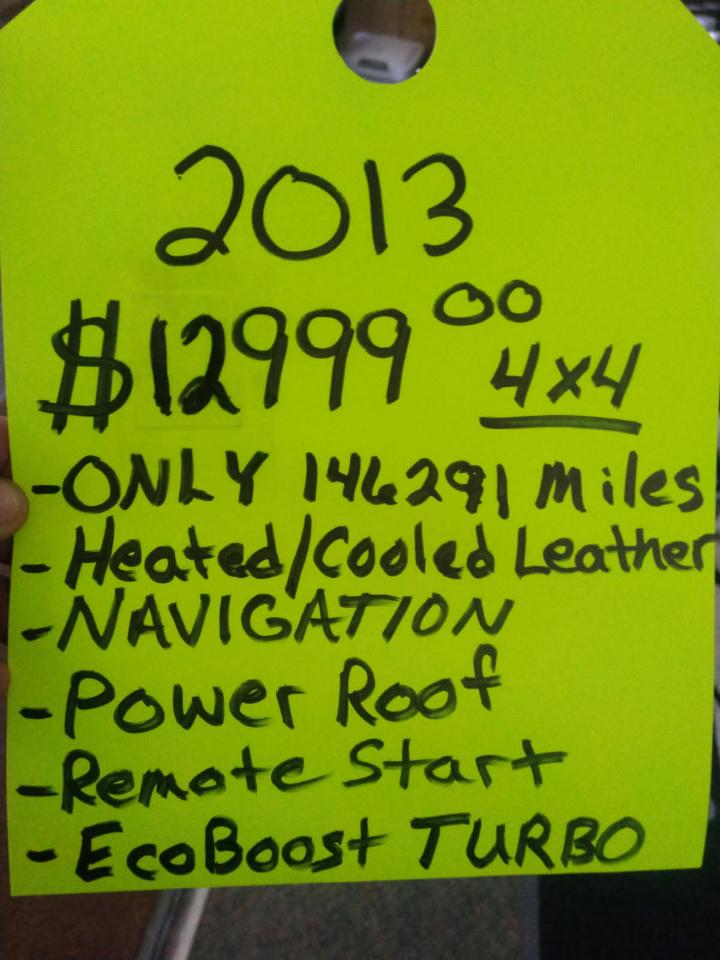 2013
$12999 00 4x4
- ONLY 146291 Miles
- Heated/Cooled Leather
- NAVIGATION
- Power Roof
- Remote Start
- EcoBoost TURBO